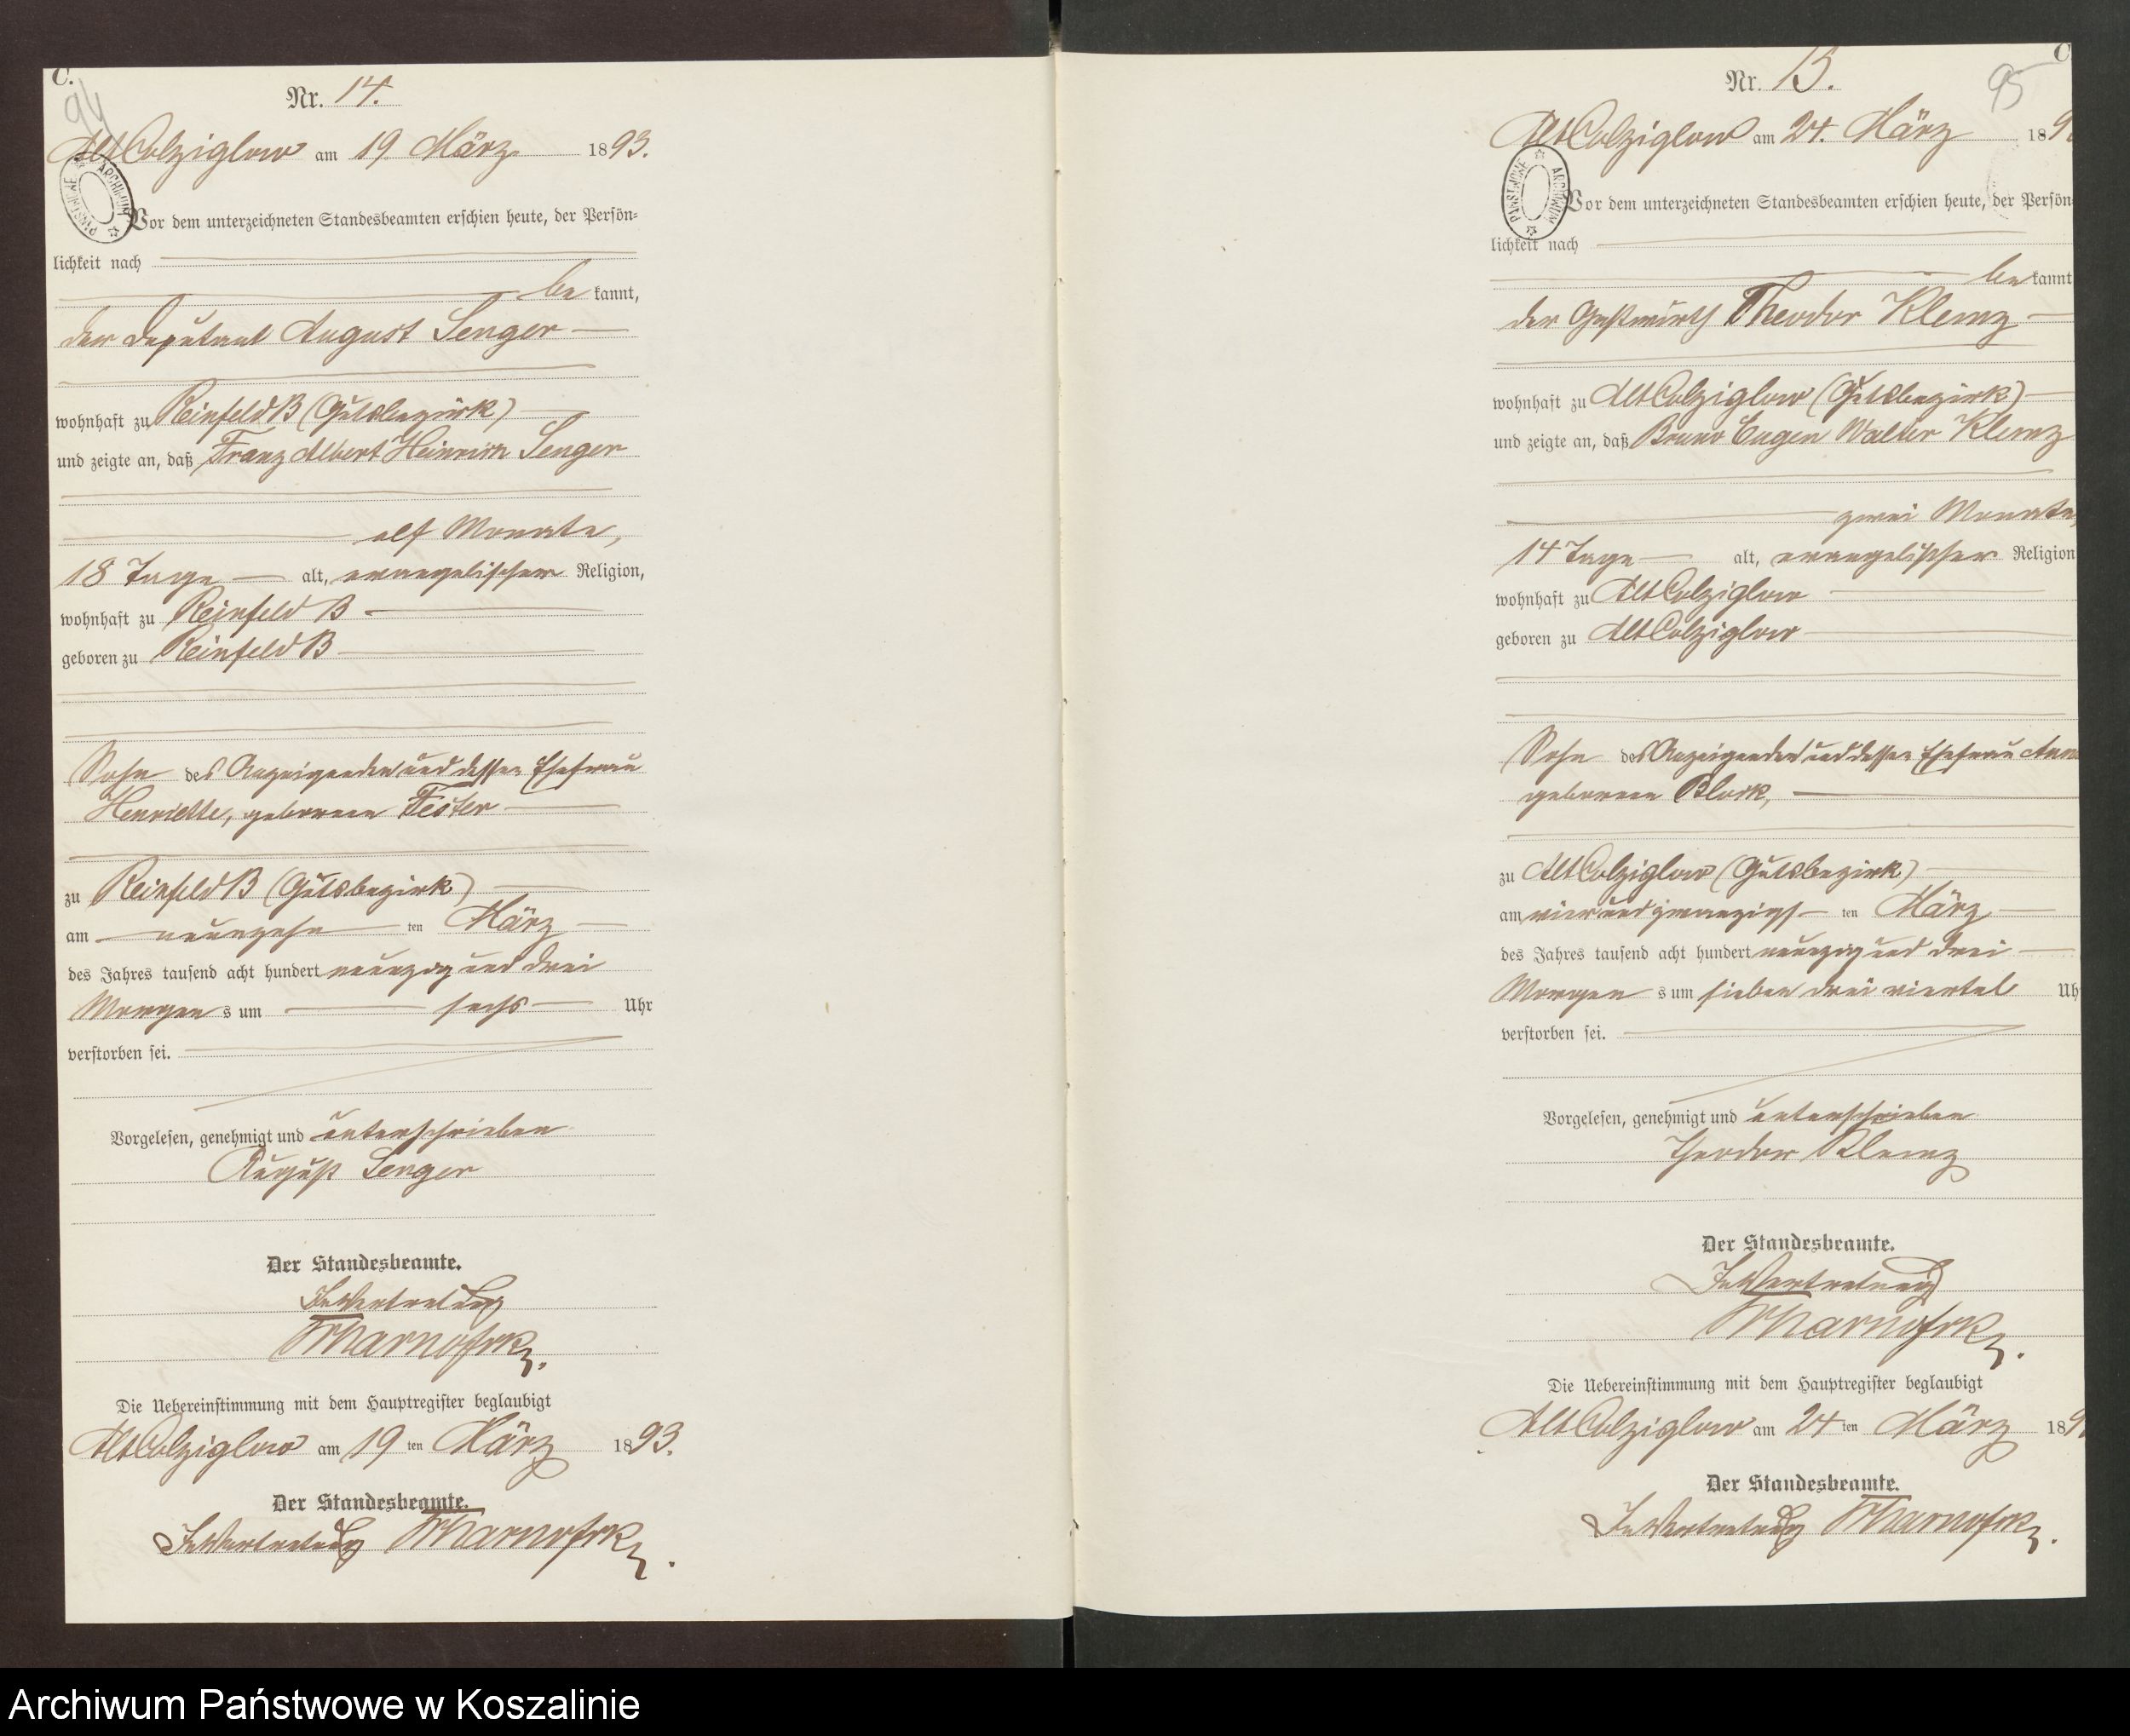 C.
94
Nr. 14.
Alt Colziglow am 19. März 1893.
ARCHIWUM PAŃSTWOWE
Vor dem unterzeichneten Standesbeamten erschien heute, der Persön=
lichkeit nach
be kannt,
der Deputant August Senger
wohnhaft zu Reinfeld B (Gutsbezirk)
und zeigte an, daß Franz Albert Heinrich Senger
elf Monate,
18 Tage alt, evangelischer Religion,
wohnhaft zu Reinfeld B
geboren zu Reinfeld B
Sohn des Anzeigenden und dessen Ehefrau
Henriette, geborenen Fester
zu Reinfeld B (Gutsbezirk)
am neunzehn ten März
des Jahres tausend acht hundert neunzig und drei
Morgen s um sechs Uhr
verstorben sei.
Vorgelesen, genehmigt und unterschrieben
August Senger
Der Standesbeamte.
In Vertretung
Die Uebereinstimmung mit dem Hauptregister beglaubigt
Alt Colziglow am 19 ten März 1893.
Der Standesbeamte.
In Vertretung
C
95
Nr. 15.
Alt Colziglow am 24. März 189
ARCHIWUM PAŃSTWOWE
Vor dem unterzeichneten Standesbeamten erschien heute, der Persön
lichkeit nach
be kannt
der Gastwirth Theodor Klemz
wohnhaft zu Alt Colziglow (Gutsbezirk)
und zeigte an, daß Bruno Eugen Walter Klemz
zwei Monate,
14 Tage alt, evangelischer Religion
wohnhaft zu Alt Colziglow
geboren zu Alt Colziglow
Sohn des Anzeigenden und dessen Ehefrau Anna
geborenen Block,
zu Alt Colziglow (Gutsbezirk)
am vier und zwanzigs ten März
des Jahres tausend acht hundert neunzig und drei
Morgen s um sieben drei viertel Uh
verstorben sei.
Vorgelesen, genehmigt und unterschrieben
Theodor Klemz
Der Standesbeamte.
In Vertretung
Die Uebereinstimmung mit dem Hauptregister beglaubigt
Alt Colziglow am 24 ten März 189
Der Standesbeamte.
In Vertretung
Archiwum Państwowe w Koszalinie